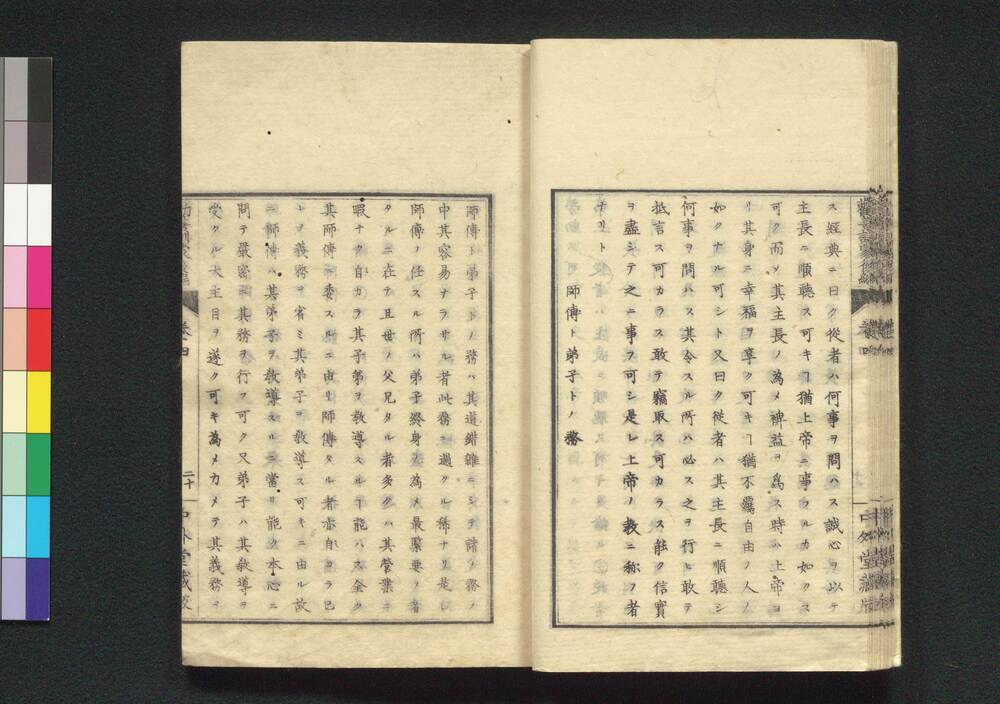 ス經典ニ曰ク從者ハ何事ヲ問ハス誠心ヲ以テ
主長ニ順聽ス可キヿ猶上帝ニ事フルカ如クス
可ク而メ其主長ノ為メ裨益ヲ為ス時ハ上帝ヨ
リ其身ニ幸福ヲ享ク可キヿ猶不覊自由ノ人ノ
如クナル可シト又曰ク從者ハ其主長ニ順聽シ
何事ヲ問ハス其令スル所ハ必ス之ヲ行ヒ敢テ
抵言ス可カラス敢テ竊取ス可カラス能ク信實
ヲ盡シテ之ニ事フ可シ是レ上帝ノ教ニ称フ者
ナリト
師傳ト弟子トノ務
師傳ト弟子トノ務ハ其道紺雜ニシテ諸ノ務ノ
中其容易ナラサル者此務ニ過クル稀ナリ是レ
師傳ノ任スル所ハ弟子終身ノ為メ最緊要ノ者
タルニ在テ且世ノ父兄タル者多クハ其營業ニ
暇ナク自カラ其子弟ヲ教導スルヿ能ハス全ク
其師傳ニ委スルニ由リ師傳タル者亦自カラ己
レノ義務ヲ省ミ其弟子ヲ教導ス可キニ由ル故
ニ師傳ハ其弟子ヲ教導スルニ當リ能ク本心ニ
問テ嚴密ニ其務ヲ行フ可ク又弟子ハ其教導ヲ
受クル大主目ヲ遂ク可キ為メカメテ其義務ヲ
卷四
二十
中外堂藏版